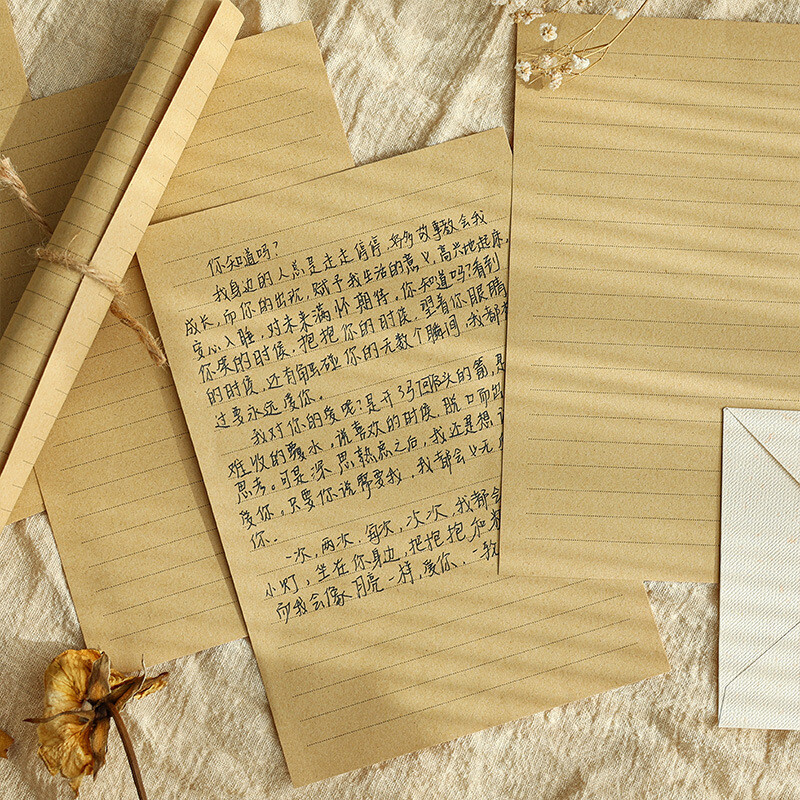 你知道吗？
我身边的人总是走走停停，好多故事教会我
成长，而你的出现，赋予我生活的意义，高兴地起床，
安心入睡，对未来满怀期待。你知道吗？看到
你笑的时候，抱抱你的时候，望着你眼睛
的时候，还有触碰你的无数个瞬间，我都
过要永远爱你。
我对你的爱呢？是开弓回头的箭，是
难收的覆水，说喜欢的时候，脱口而出
思考。可是深思熟虑之后，我还是想
爱你，只要你说需要我，我都会义无
你。
一次，两次，每次，次次，我都会
小灯，坐在你身边，把抱抱和
而我会像月亮一样，爱你，一